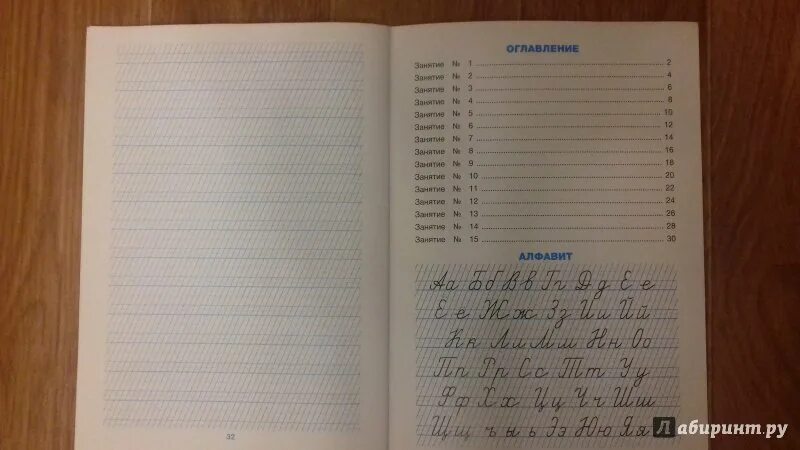 32
ОГЛАВЛЕНИЕ
Занятие № 1 2
Занятие № 2 4
Занятие № 3 6
Занятие № 4 8
Занятие № 5 10
Занятие № 6 12
Занятие № 7 14
Занятие № 8 16
Занятие № 9 18
Занятие № 10 20
Занятие № 11 22
Занятие № 12 24
Занятие № 13 26
Занятие № 14 28
Занятие № 15 30
АЛФАВИТ
Аа Бб Вв Гг Дд Ее
Ёе Жж Зз Ии Йй
Кк Лл Мм Нн Оо
Пп Рр Сс Тт Уу
Фф Хх Цц Чч Шш
Щщ ъ ы ь Ээ Юю Яя
Лабиринт.ру